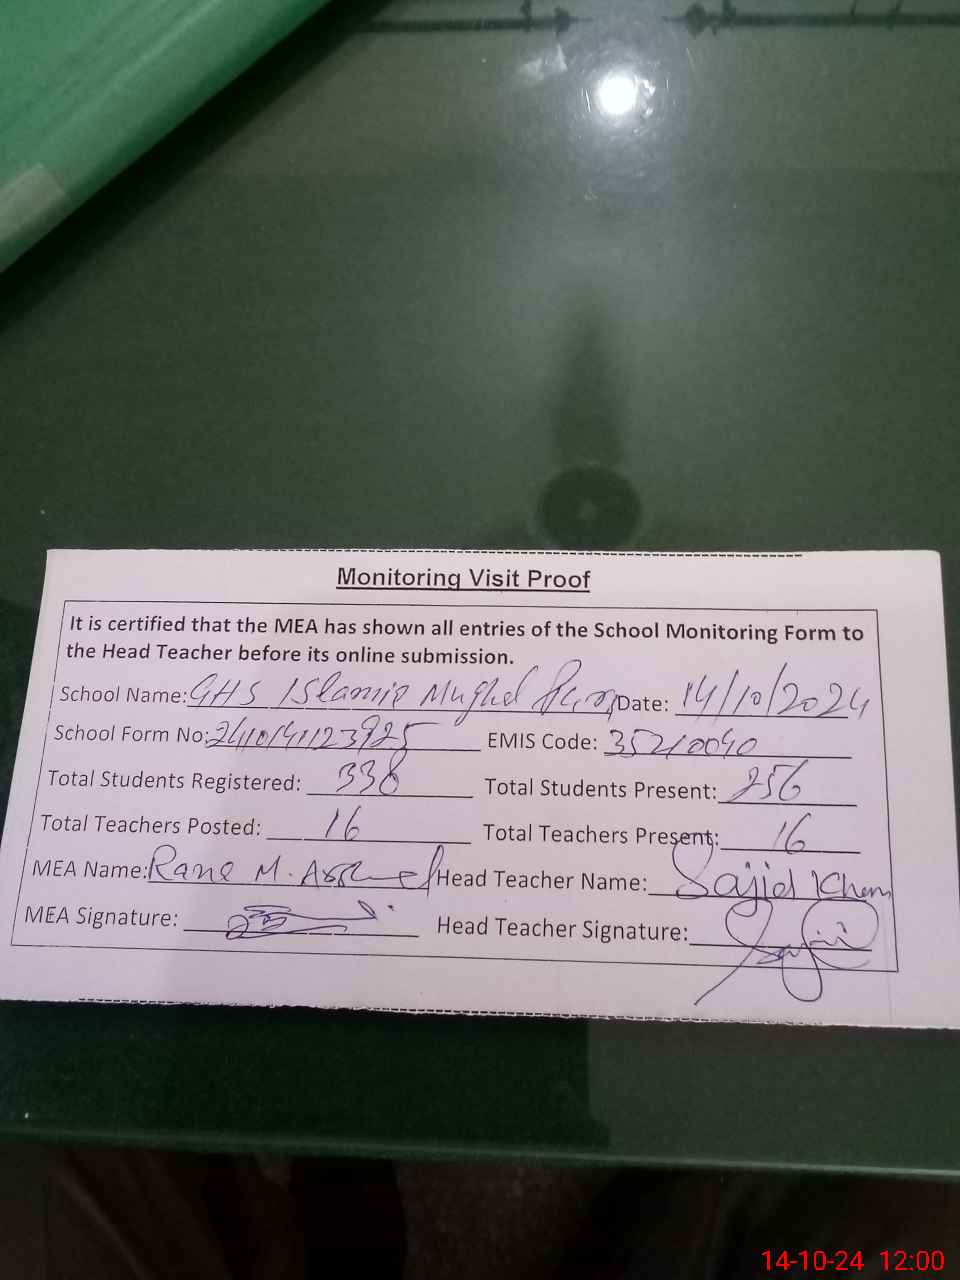 Monitoring Visit Proof
It is certified that the MEA has shown all entries of the School Monitoring Form to
the Head Teacher before its online submission.
School Name: GHS Islamia Mughal Date: 14/10/2024
School Form No: EMIS Code: 35210040
Total Students Registered: 338 Total Students Present: 256
Total Teachers Posted: 16 Total Teachers Present: 16
MEA Name: Rana M. Head Teacher Name: Sajid Khan
MEA Signature: Head Teacher Signature:
14-10-24 12:00